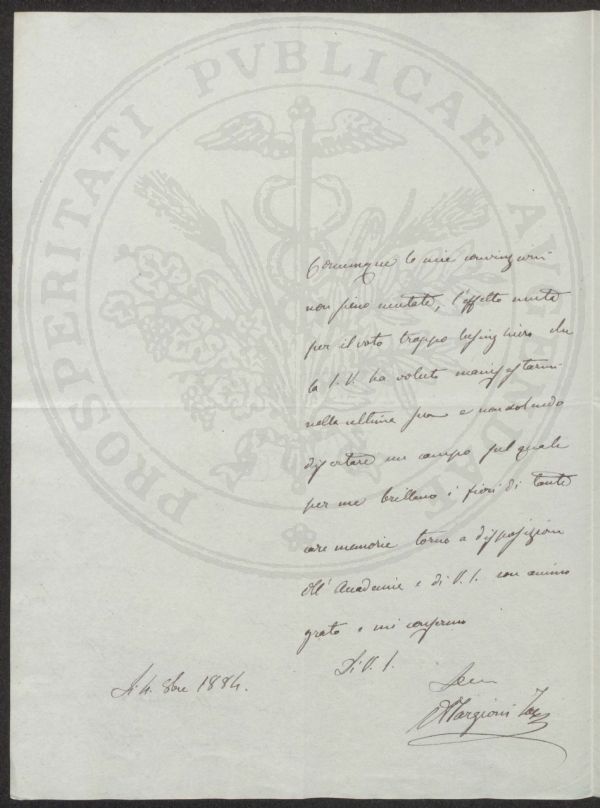 PROSPERITATI PVBLICAE AVGENDAE
Comunque le mie convinzioni
non sieno mutate, l'affetto
per il voto troppo lusinghiero che
la S.V. ha voluto manifestarmi
nella ultima sua e non volendo
disertare un campo sul quale
per me brillano i fiori di tante
care memorie torno a disposizione
dell' Accademia e di V.S. con animo
grato e mi confermo
Di V.S.
Li 4. 8bre 1884.
Targioni